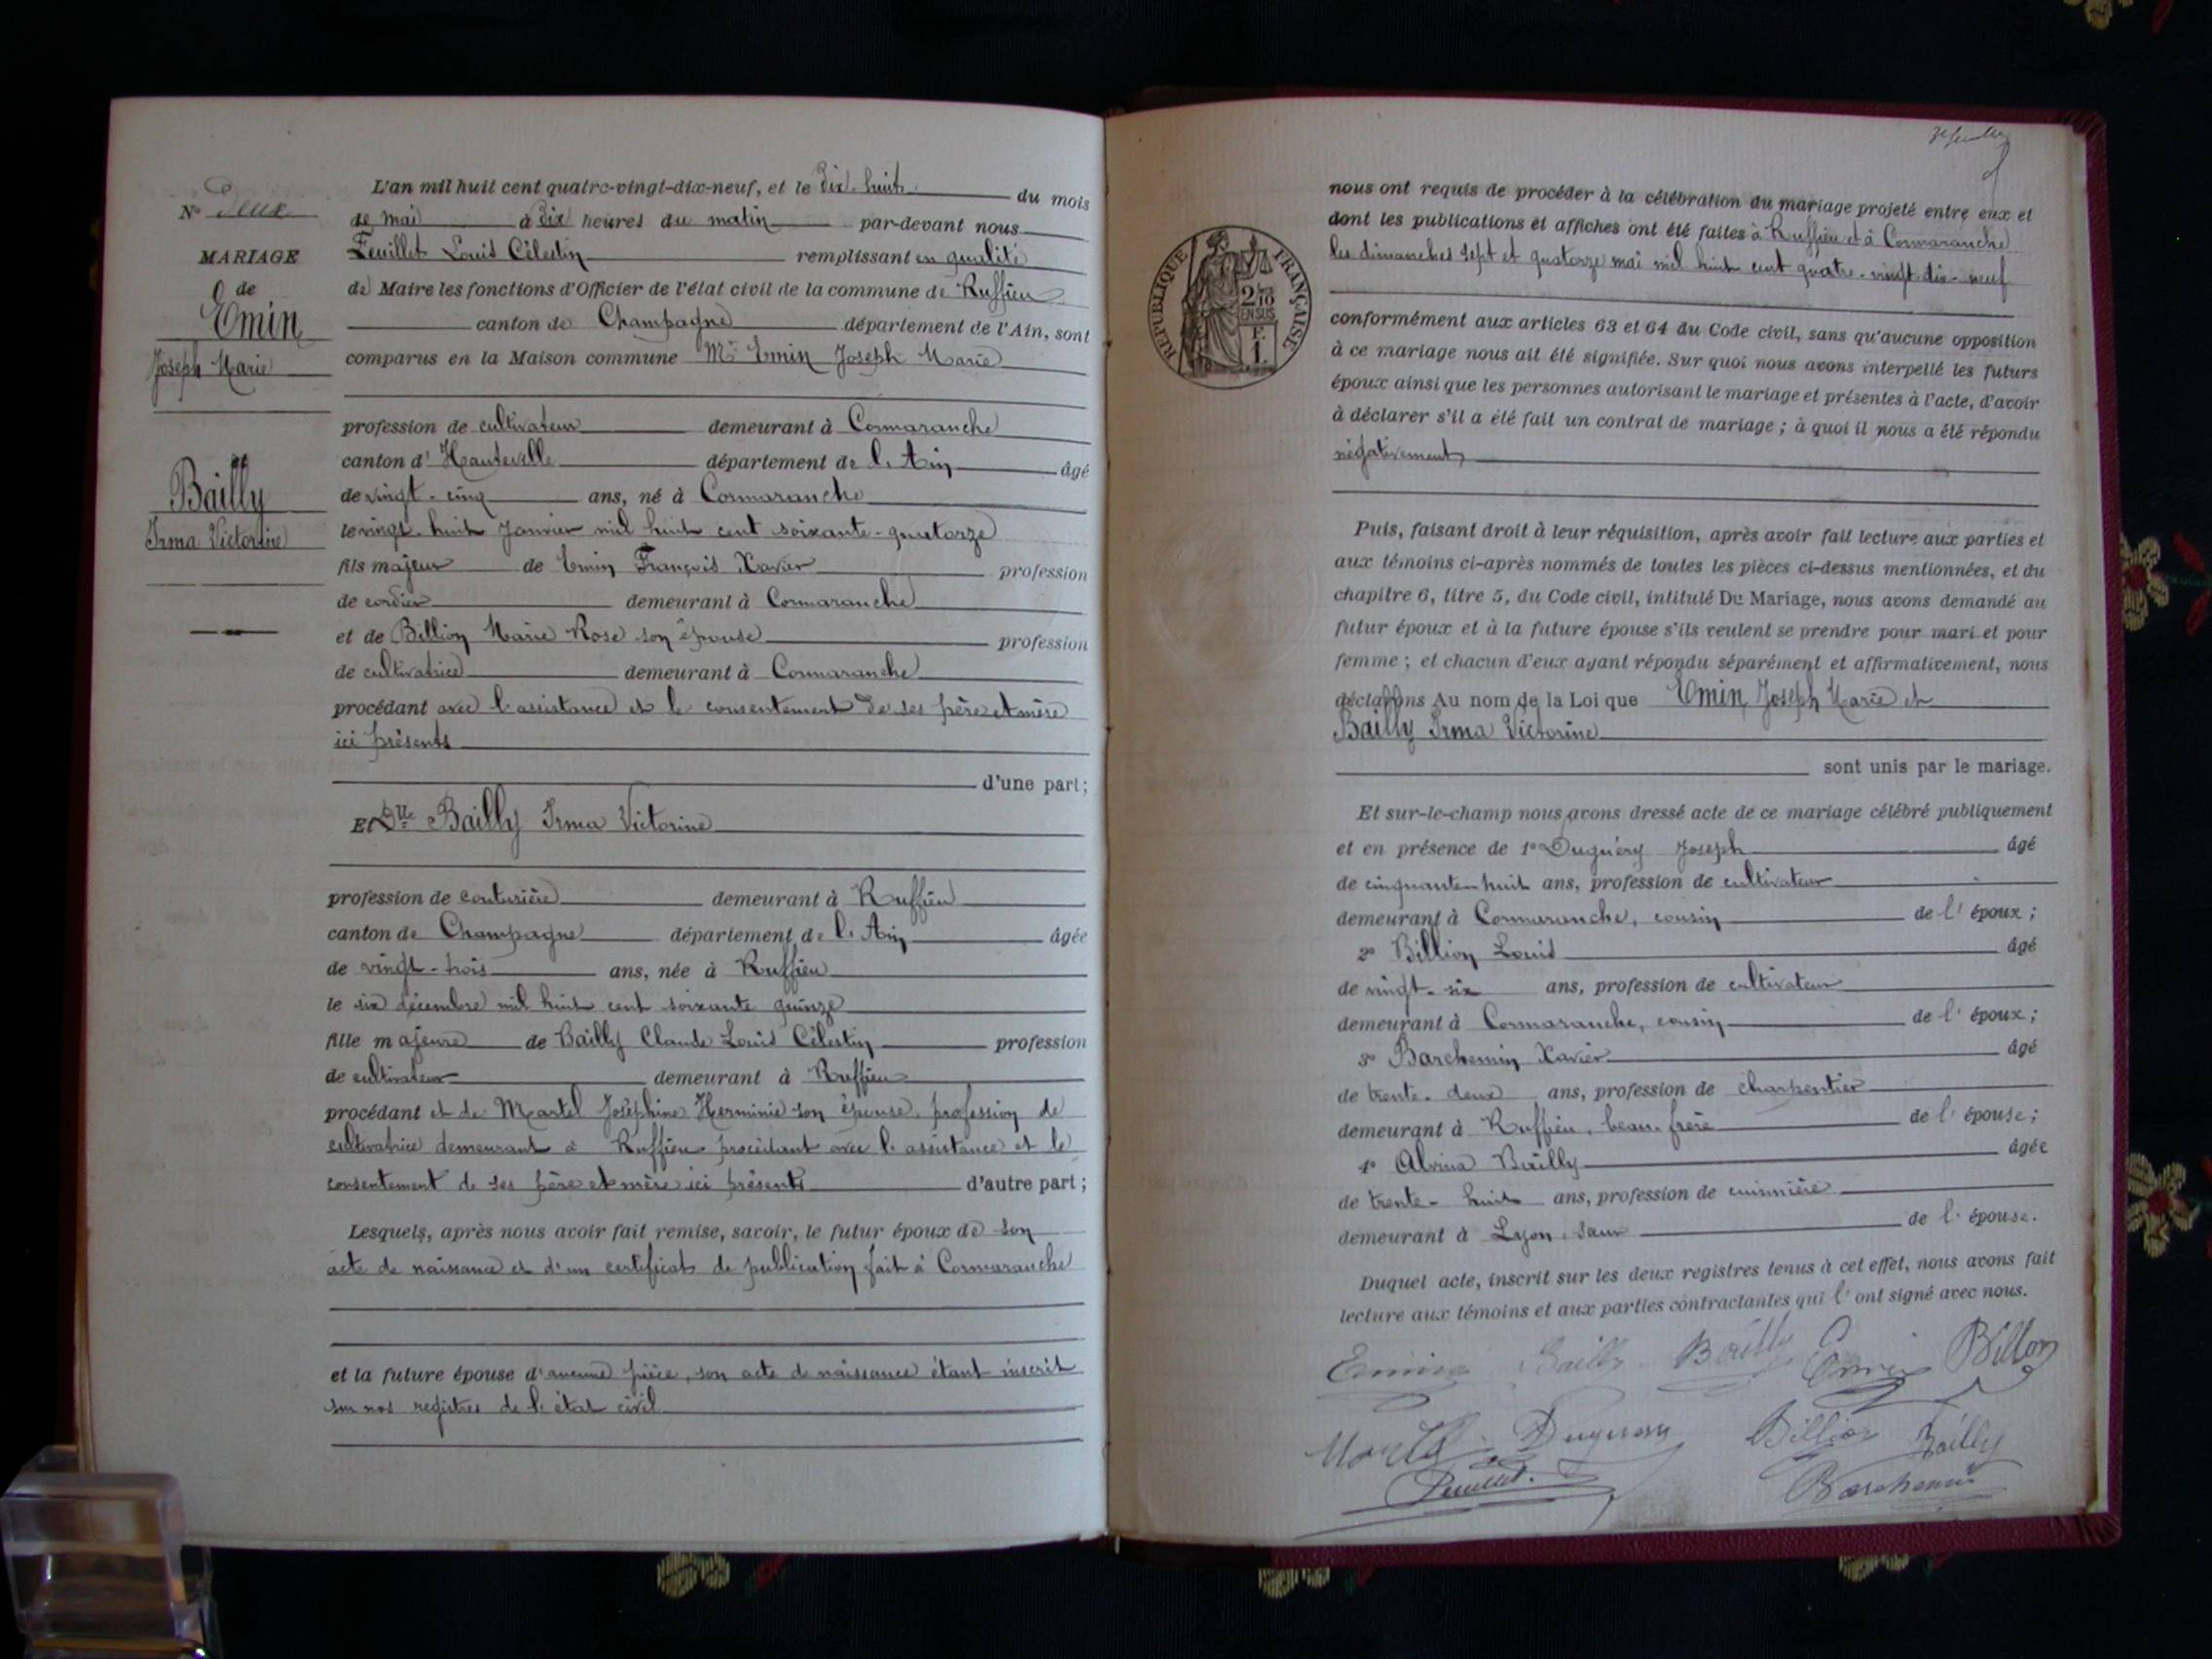 N° Deux
MARIAGE
de
Emin
Joseph Marie
Bailly
Irma Victorine
L'an mil huit cent quatre-vingt-dix-neuf, et le Dix huit du mois
de mai à Dix heures du matin par-devant nous
Feuillet Louis Célestin remplissant en qualité
de Maire les fonctions d'Officier de l'état civil de la commune de Ruffieu
canton de Champagne département de l'Ain, sont
comparus en la Maison commune Mr Emin Joseph Marie
profession de cultivateur demeurant à Cormaranche
canton d'Hauteville département de l'Ain âgé
de vingt-cinq ans, né à Cormaranche
le vingt-huit Janvier mil huit cent soixante-quatorze
fils majeur de Emin François Xavier profession
de cordier demeurant à Cormaranche
et de Billion Marie Rose son épouse profession
de cultivatrice demeurant à Cormaranche
procédant avec l'assistance et le consentement de ses père et mère
ici présents
d'une part;
Et Dlle Bailly Irma Victorine
profession de couturière demeurant à Ruffieu
canton de Champagne département de l'Ain âgée
de vingt-trois ans, née à Ruffieu
le six décembre mil huit cent soixante quinze
fille majeure de Bailly Claude Louis Célestin profession
de cultivateur demeurant à Ruffieu
procédant et de Martel Joséphine Herminie son épouse, profession de
cultivatrice demeurant à Ruffieu procédant avec l'assistance et le
consentement de ses père et mère ici présents d'autre part;
Lesquels, après nous avoir fait remise, savoir, le futur époux de son
acte de naissance et d'un certificat de publication fait à Cormaranche
et la future épouse d'aucune pièce, son acte de naissance étant inscrit
sur nos registres de l'état civil
REPUBLIQUE FRANÇAISE
2/10
EN SUS
F.
1.
nous ont requis de procéder à la célébration du mariage projeté entre eux et
dont les publications et affiches ont été faites à Ruffieu et à Cormaranche
les dimanches sept et quatorze mai mil huit cent quatre-vingt dix-neuf
conformément aux articles 63 et 64 du Code civil, sans qu'aucune opposition
à ce mariage nous ait été signifiée. Sur quoi nous avons interpellé les futurs
époux ainsi que les personnes autorisant le mariage et présentes à l'acte, d'avoir
à déclarer s'il a été fait un contrat de mariage; à quoi il nous a été répondu
négativement
Puis, faisant droit à leur réquisition, après avoir fait lecture aux parties et
aux témoins ci-après nommés de toutes les pièces ci-dessus mentionnées, et du
chapitre 6, titre 5, du Code civil, intitulé Du Mariage, nous avons demandé au
futur époux et à la future épouse s'ils veulent se prendre pour mari et pour
femme; et chacun d'eux ayant répondu séparément et affirmativement, nous
déclarons Au nom de la Loi que Emin Joseph Marie et
Bailly Irma Victorine
sont unis par le mariage.
Et sur-le-champ nous avons dressé acte de ce mariage célébré publiquement
et en présence de 1° Duguéry Joseph âgé
de cinquante-huit ans, profession de cultivateur
demeurant à Cormaranche, cousin de l'époux;
2° Billion Louis âgé
de vingt-six ans, profession de cultivateur
demeurant à Cormaranche, cousin de l'époux;
3° Barchemin Xavier âgé
de trente-deux ans, profession de charpentier
demeurant à Ruffieu, beau-frère de l'épouse;
4° Alvina Bailly âgée
de trente-huit ans, profession de cuisinière
demeurant à Lyon, sœur de l'épouse.
Duquel acte, inscrit sur les deux registres tenus à cet effet, nous avons fait
lecture aux témoins et aux parties contractantes qui l'ont signé avec nous.
Emin Bailly Bailly Emin Billion
Duguery Billion Bailly
Feuillet. Barchemin